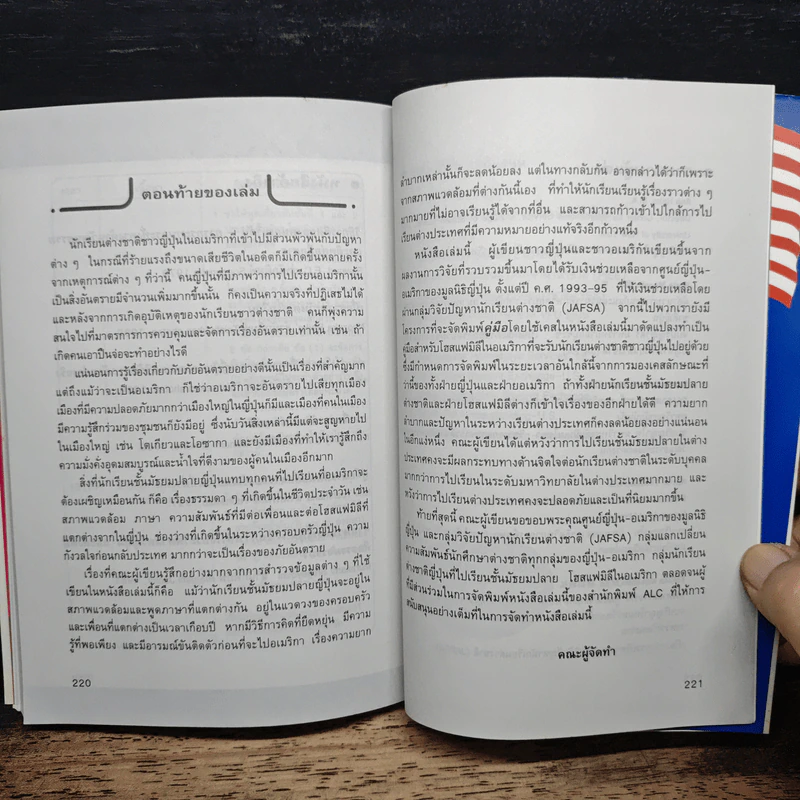 ตอนท้ายของเล่ม
นักเรียนต่างชาติชาวญี่ปุ่นในอเมริกาที่เข้าไปมีส่วนพัวพันกับปัญหา
ต่าง ๆ ในกรณีที่ร้ายแรงถึงขนาดเสียชีวิตในอดีตก็มีเกิดขึ้นหลายครั้ง
จากเหตุการณ์ต่าง ๆ ที่ว่านี้ คนญี่ปุ่นที่มีภาพว่าการไปเรียนอเมริกานั้น
เป็นสิ่งอันตรายมีจำนวนเพิ่มมากขึ้นนั้น ก็คงเป็นความจริงที่ปฏิเสธไม่ได้
และหลังจากการเกิดอุบัติเหตุของนักเรียนชาวต่างชาติ คนก็พุ่งความ
สนใจไปที่มาตรการการควบคุมและจัดการเรื่องอันตรายเท่านั้น เช่น ถ้า
เกิดคนเอาปืนจ่อจะทำอย่างไรดี
แน่นอนการรู้เรื่องเกี่ยวกับภัยอันตรายอย่างดีนั้นเป็นเรื่องที่สำคัญมาก
แต่ถึงแม้ว่าจะเป็นอเมริกา ก็ใช่ว่าอเมริกาจะอันตรายไปเสียทุกเมือง
เมืองที่มีความปลอดภัยมากกว่าเมืองใหญ่ในญี่ปุ่นก็มีและเมืองที่คนในเมือง
มีความรู้สึกร่วมของชุมชนก็ยังมีอยู่ ซึ่งนับวันสิ่งเหล่านี้มีแต่จะสูญหายไป
ในเมืองใหญ่ เช่น โตเกียวและโอซากา และยังมีเมืองที่ทำให้เรารู้สึกถึง
ความมั่งคั่งอุดมสมบูรณ์และน้ำใจที่ดีงามของผู้คนในเมืองอีกมาก
สิ่งที่นักเรียนชั้นมัธยมปลายญี่ปุ่นแทบทุกคนที่ไปเรียนที่อเมริกาจะ
ต้องเผชิญเหมือนกัน ก็คือ เรื่องธรรมดา ๆ ที่เกิดขึ้นในชีวิตประจำวัน เช่น
สภาพแวดล้อม ภาษา ความสัมพันธ์ที่มีต่อเพื่อนและต่อโฮสแฟมิลีที่
แตกต่างจากในญี่ปุ่น ช่องว่างที่เกิดขึ้นในระหว่างครอบครัวญี่ปุ่น ความ
กังวลใจก่อนกลับประเทศ มากกว่าจะเป็นเรื่องของภัยอันตราย
เรื่องที่คณะผู้เขียนรู้สึกอย่างมากจากการสำรวจข้อมูลต่าง ๆ ที่ใช้
เขียนในหนังสือเล่มนี้ก็คือ แม้ว่านักเรียนชั้นมัธยมปลายญี่ปุ่นจะอยู่ใน
สภาพแวดล้อมและพูดภาษาที่แตกต่างกัน อยู่ในแวดวงของครอบครัว
และเพื่อนที่แตกต่างเป็นเวลาเกือบปี หากมีวิธีการคิดที่ยืดหยุ่น มีความ
รู้ที่พอเพียง และมีอารมณ์ขันติดตัวก่อนที่จะไปอเมริกา เรื่องความยาก
220
ลำบากเหล่านั้นก็จะลดน้อยลง แต่ในทางกลับกัน อาจกล่าวได้ว่าก็เพราะ
จากสภาพแวดล้อมที่ต่างกันนี้เอง ที่ทำให้นักเรียนเรียนรู้เรื่องราวต่าง ๆ
มากมายที่ไม่อาจเรียนรู้ได้จากที่อื่น และสามารถก้าวเข้าไปใกล้การไป
เรียนต่างประเทศที่มีความหมายอย่างแท้จริงอีกก้าวหนึ่ง
หนังสือเล่มนี้ ผู้เขียนชาวญี่ปุ่นและชาวอเมริกันเขียนขึ้นจาก
ผลงานการวิจัยที่รวบรวมขึ้นมาโดยได้รับเงินช่วยเหลือจากศูนย์ญี่ปุ่น-
อเมริกาของมูลนิธิญี่ปุ่น ตั้งแต่ปี ค.ศ. 1993-95 ที่ให้เงินช่วยเหลือโดย
ผ่านกลุ่มวิจัยปัญหานักเรียนต่างชาติ (JAFSA) จากนี้ไปพวกเรายังมี
โครงการที่จะจัดพิมพ์คู่มือโดยใช้เคสในหนังสือเล่มนี้มาดัดแปลงทำเป็น
คู่มือสำหรับโฮสแฟมิลีในอเมริกาที่จะรับนักเรียนต่างชาติชาวญี่ปุ่นไปอยู่ด้วย
ซึ่งมีกำหนดการจัดพิมพ์ในระยะเวลาอันใกล้นี้จากการมองเคสลักษณะที่
ว่านี้ของทั้งฝ่ายญี่ปุ่นและฝ่ายอเมริกา ถ้าทั้งฝ่ายนักเรียนชั้นมัธยมปลาย
ต่างชาติและฝ่ายโฮสแฟมิลีต่างก็เข้าใจเรื่องของอีกฝ่ายได้ดี ความยาก
ลำบากและปัญหาในระหว่างเรียนต่างประเทศก็คงลดน้อยลงอย่างแน่นอน
ในอีกแง่หนึ่ง คณะผู้เขียนได้แต่หวังว่าการไปเรียนชั้นมัธยมปลายในต่าง
ประเทศคงจะมีผลกระทบทางด้านจิตใจต่อนักเรียนต่างชาติในระดับบุคคล
มากกว่าการไปเรียนในระดับมหาวิทยาลัยในต่างประเทศมากมาย และ
หวังว่าการไปเรียนต่างประเทศคงจะปลอดภัยและเป็นที่นิยมมากขึ้น
ท้ายที่สุดนี้ คณะผู้เขียนขอขอบพระคุณศูนย์ญี่ปุ่น-อเมริกาของมูลนิธิ
ญี่ปุ่น และกลุ่มวิจัยปัญหานักเรียนต่างชาติ (JAFSA) กลุ่มแลกเปลี่ยน
ความสัมพันธ์นักศึกษาต่างชาติทุกกลุ่มของญี่ปุ่น-อเมริกา กลุ่มนักเรียน
ต่างชาติญี่ปุ่นที่ไปเรียนชั้นมัธยมปลาย โฮสแฟมิลีในอเมริกา ตลอดจนผู้
ที่มีส่วนร่วมในการจัดพิมพ์หนังสือเล่มนี้ของสำนักพิมพ์ ALC ที่ให้การ
สนับสนุนอย่างเต็มที่ในการจัดทำหนังสือเล่มนี้
คณะผู้จัดทำ
221